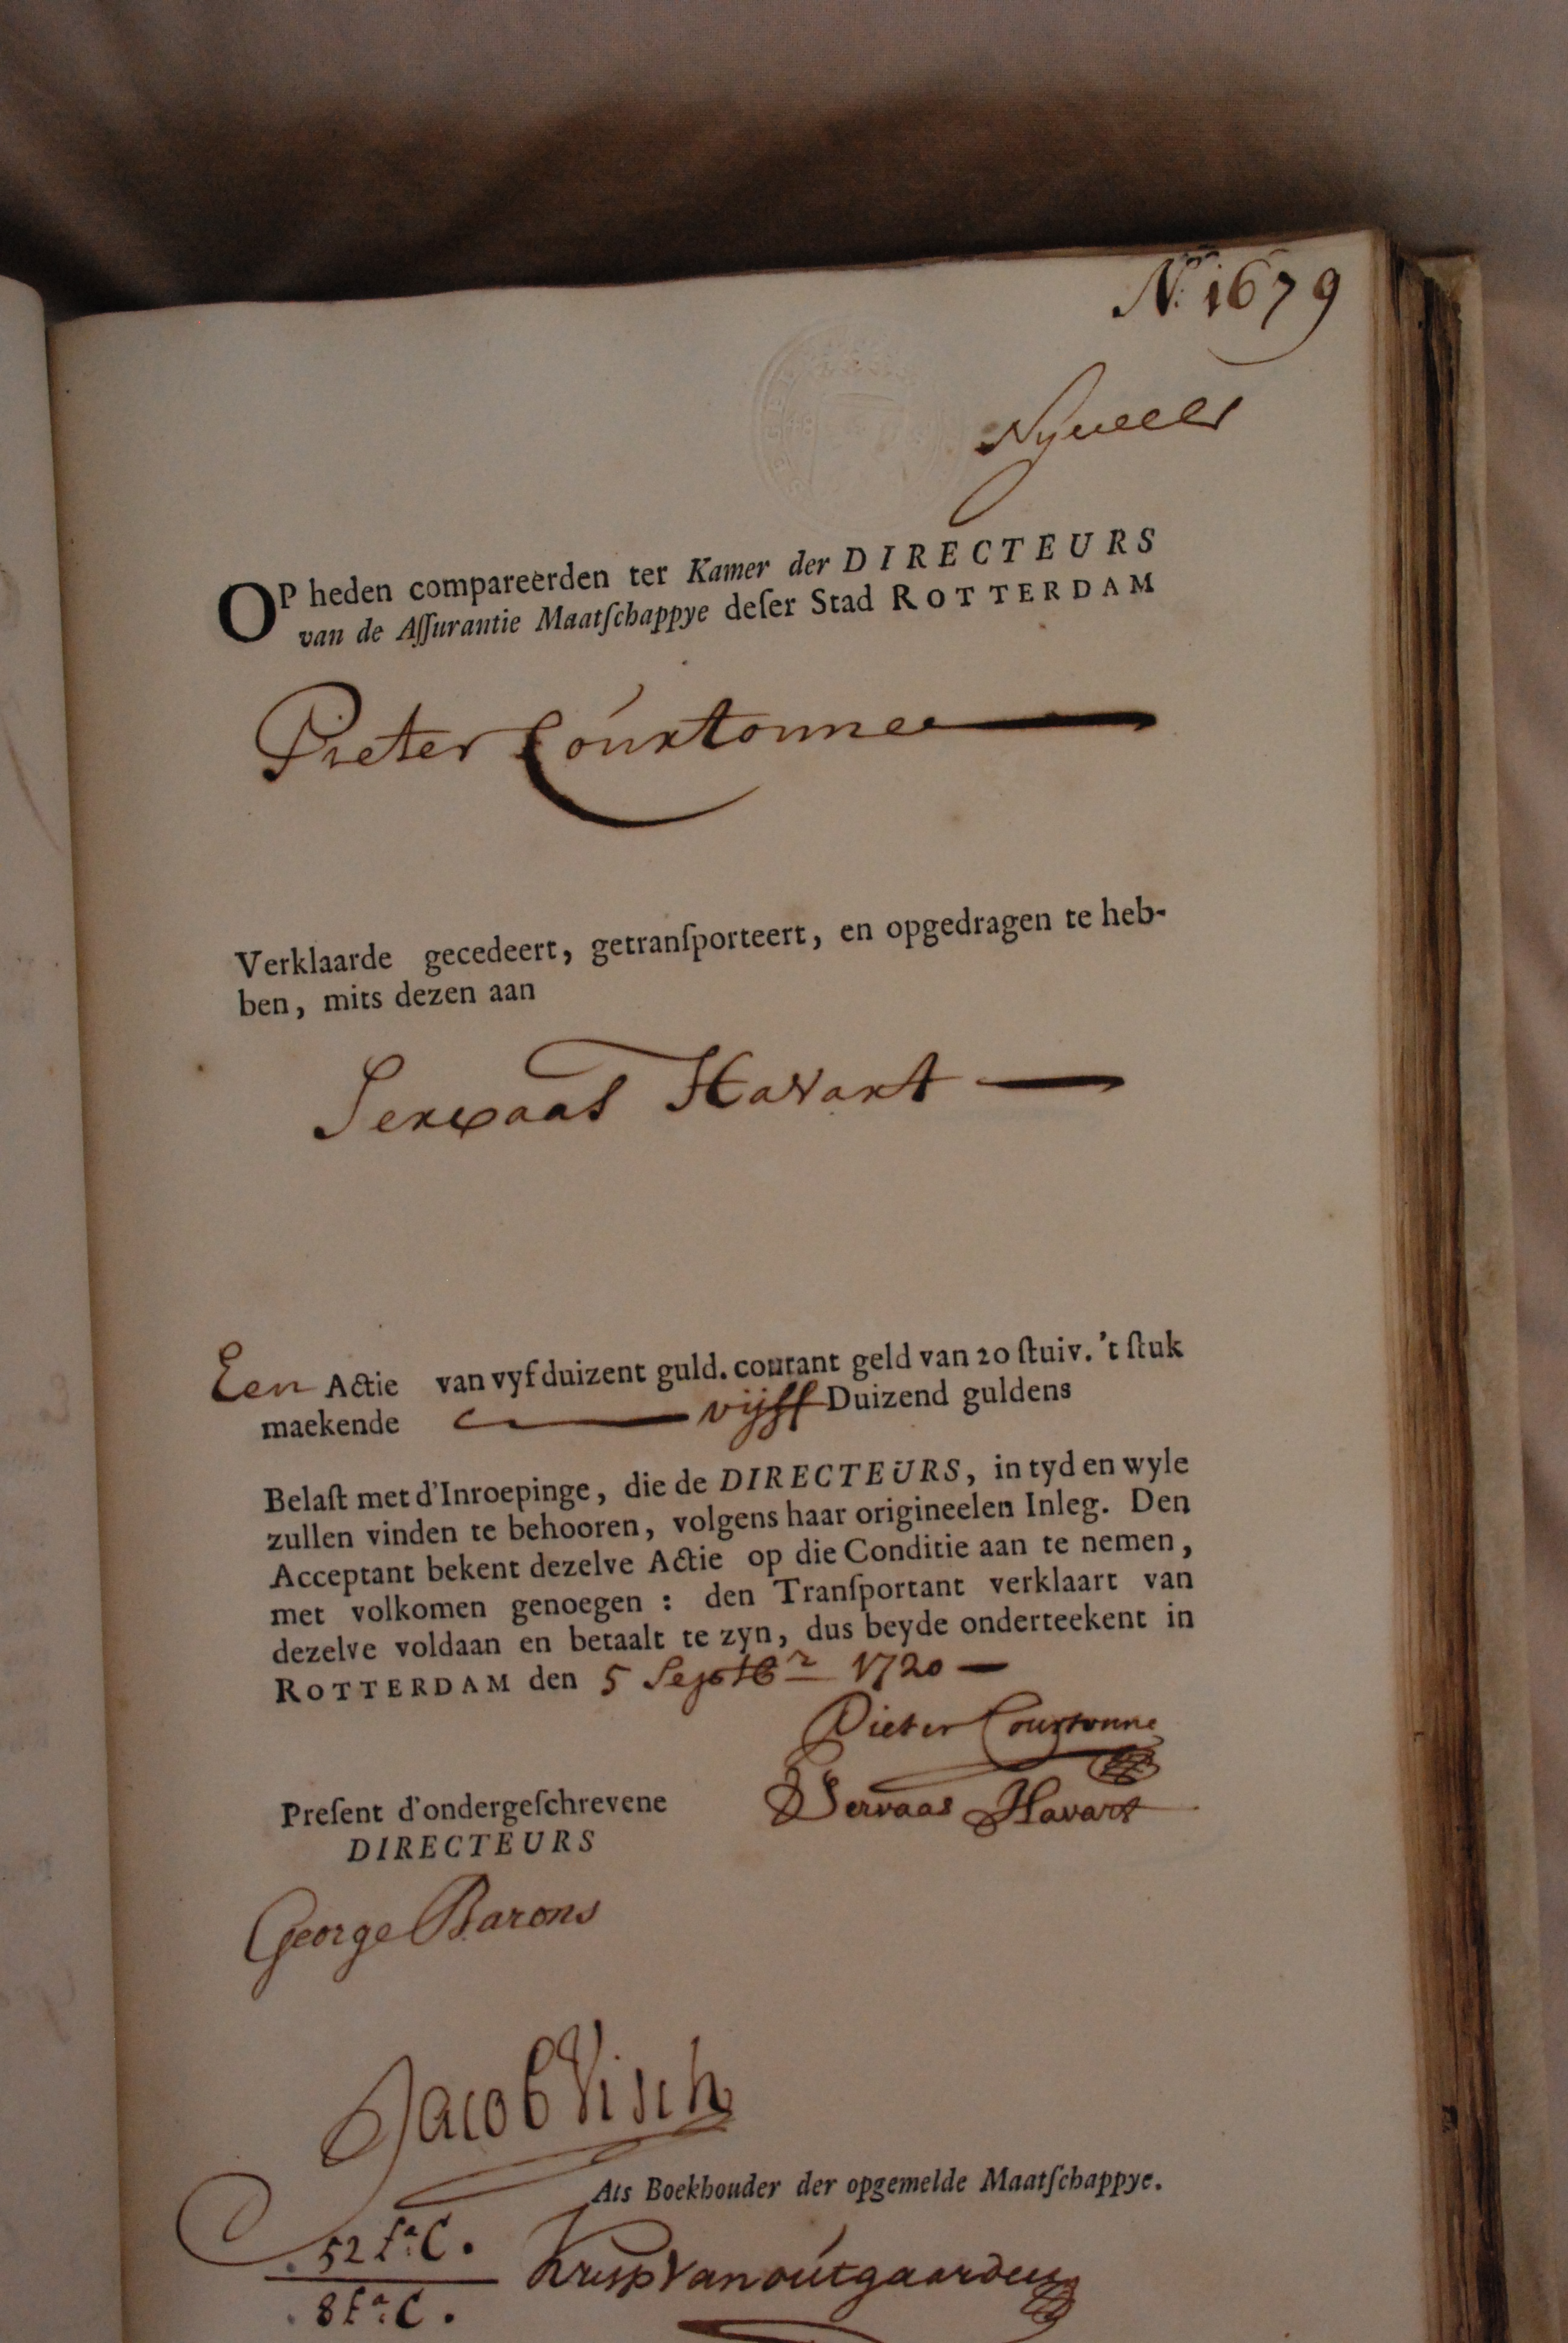 No. 1679
OP heden compareerden ter Kamer der DIRECTEURS
van de Aſſurantie Maatſchappye deſer Stad ROTTERDAM
Pieter Courtonne
Verklaarde gecedeert, getranſporteert, en opgedragen te heb-
ben, mits dezen aan
Servaas Havart
Een Actie van vyfduizent guld. courant geld van 20 ſtuiv. 't ſtuk
maekende vijff Duizend guldens
Belaſt met d'Inroepinge, die de DIRECTEURS, in tyd en wyle
zullen vinden te behooren, volgens haar origineelen Inleg. Den
Acceptant bekent dezelve Actie op die Conditie aan te nemen,
met volkomen genoegen : den Tranſportant verklaart van
dezelve voldaan en betaalt te zyn, dus beyde onderteekent in
ROTTERDAM den 5 Septbr 1720
Pieter Courtonne
Servaas Havart
Preſent d'ondergeſchrevene
DIRECTEURS
George Barons
Jacob Visch
Als Boekhouder der opgemelde Maatſchappye.
52 fo: C.
van outgaarden
8 fo: C.